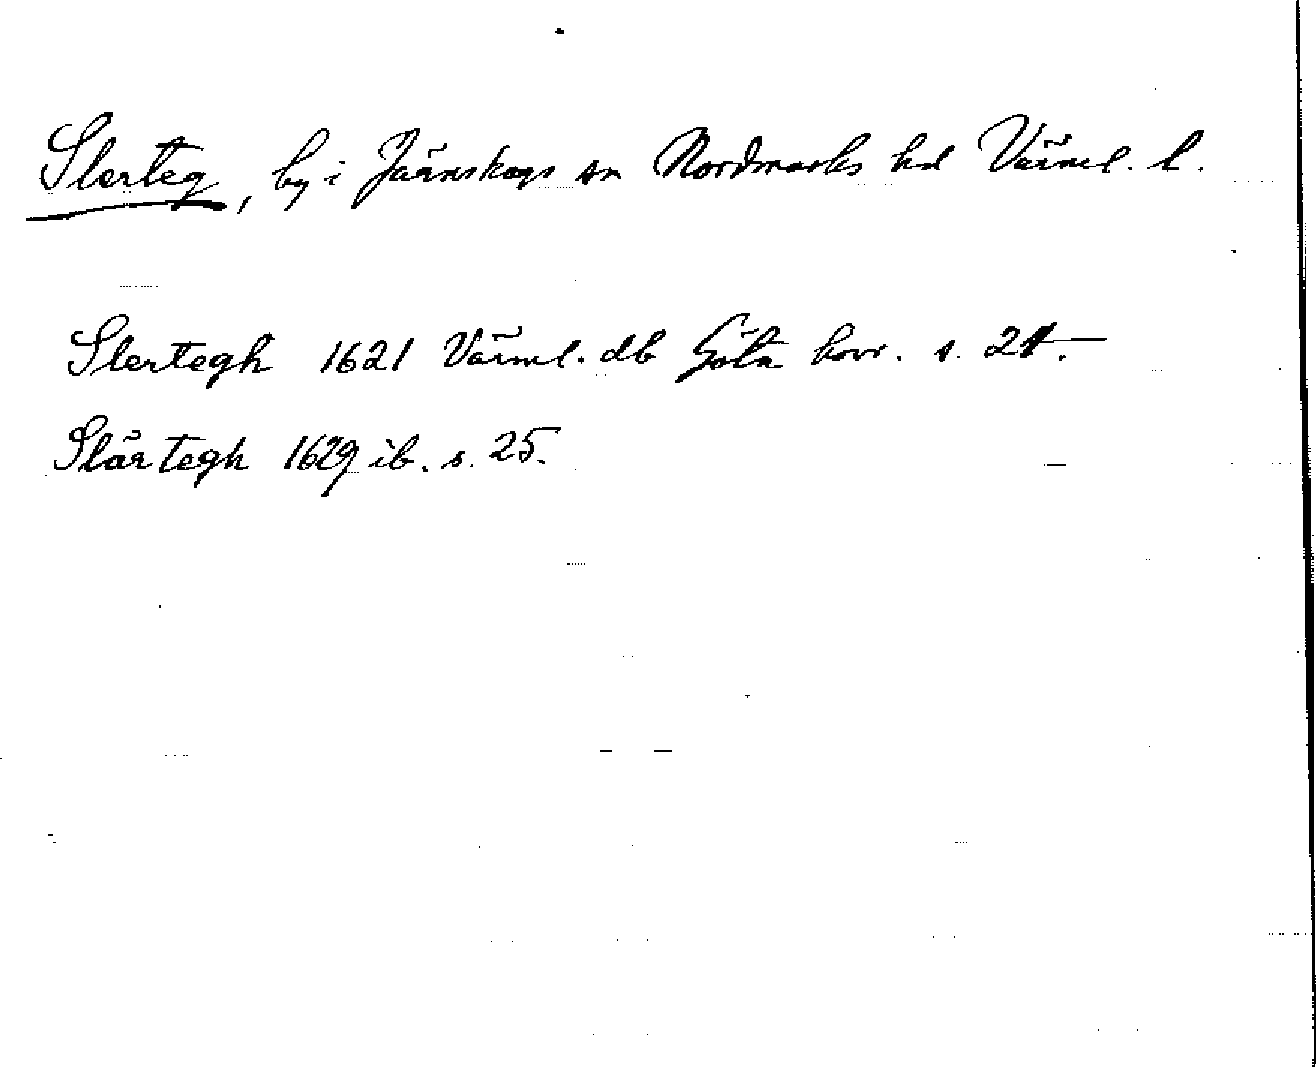 Slerteg, by i Järnskogs sn Nordmarks hd Värml. l.
Slertegh 1621 Värml. db Göta hovr. s. 21.
Slärtegh 1629 ib. s. 25.